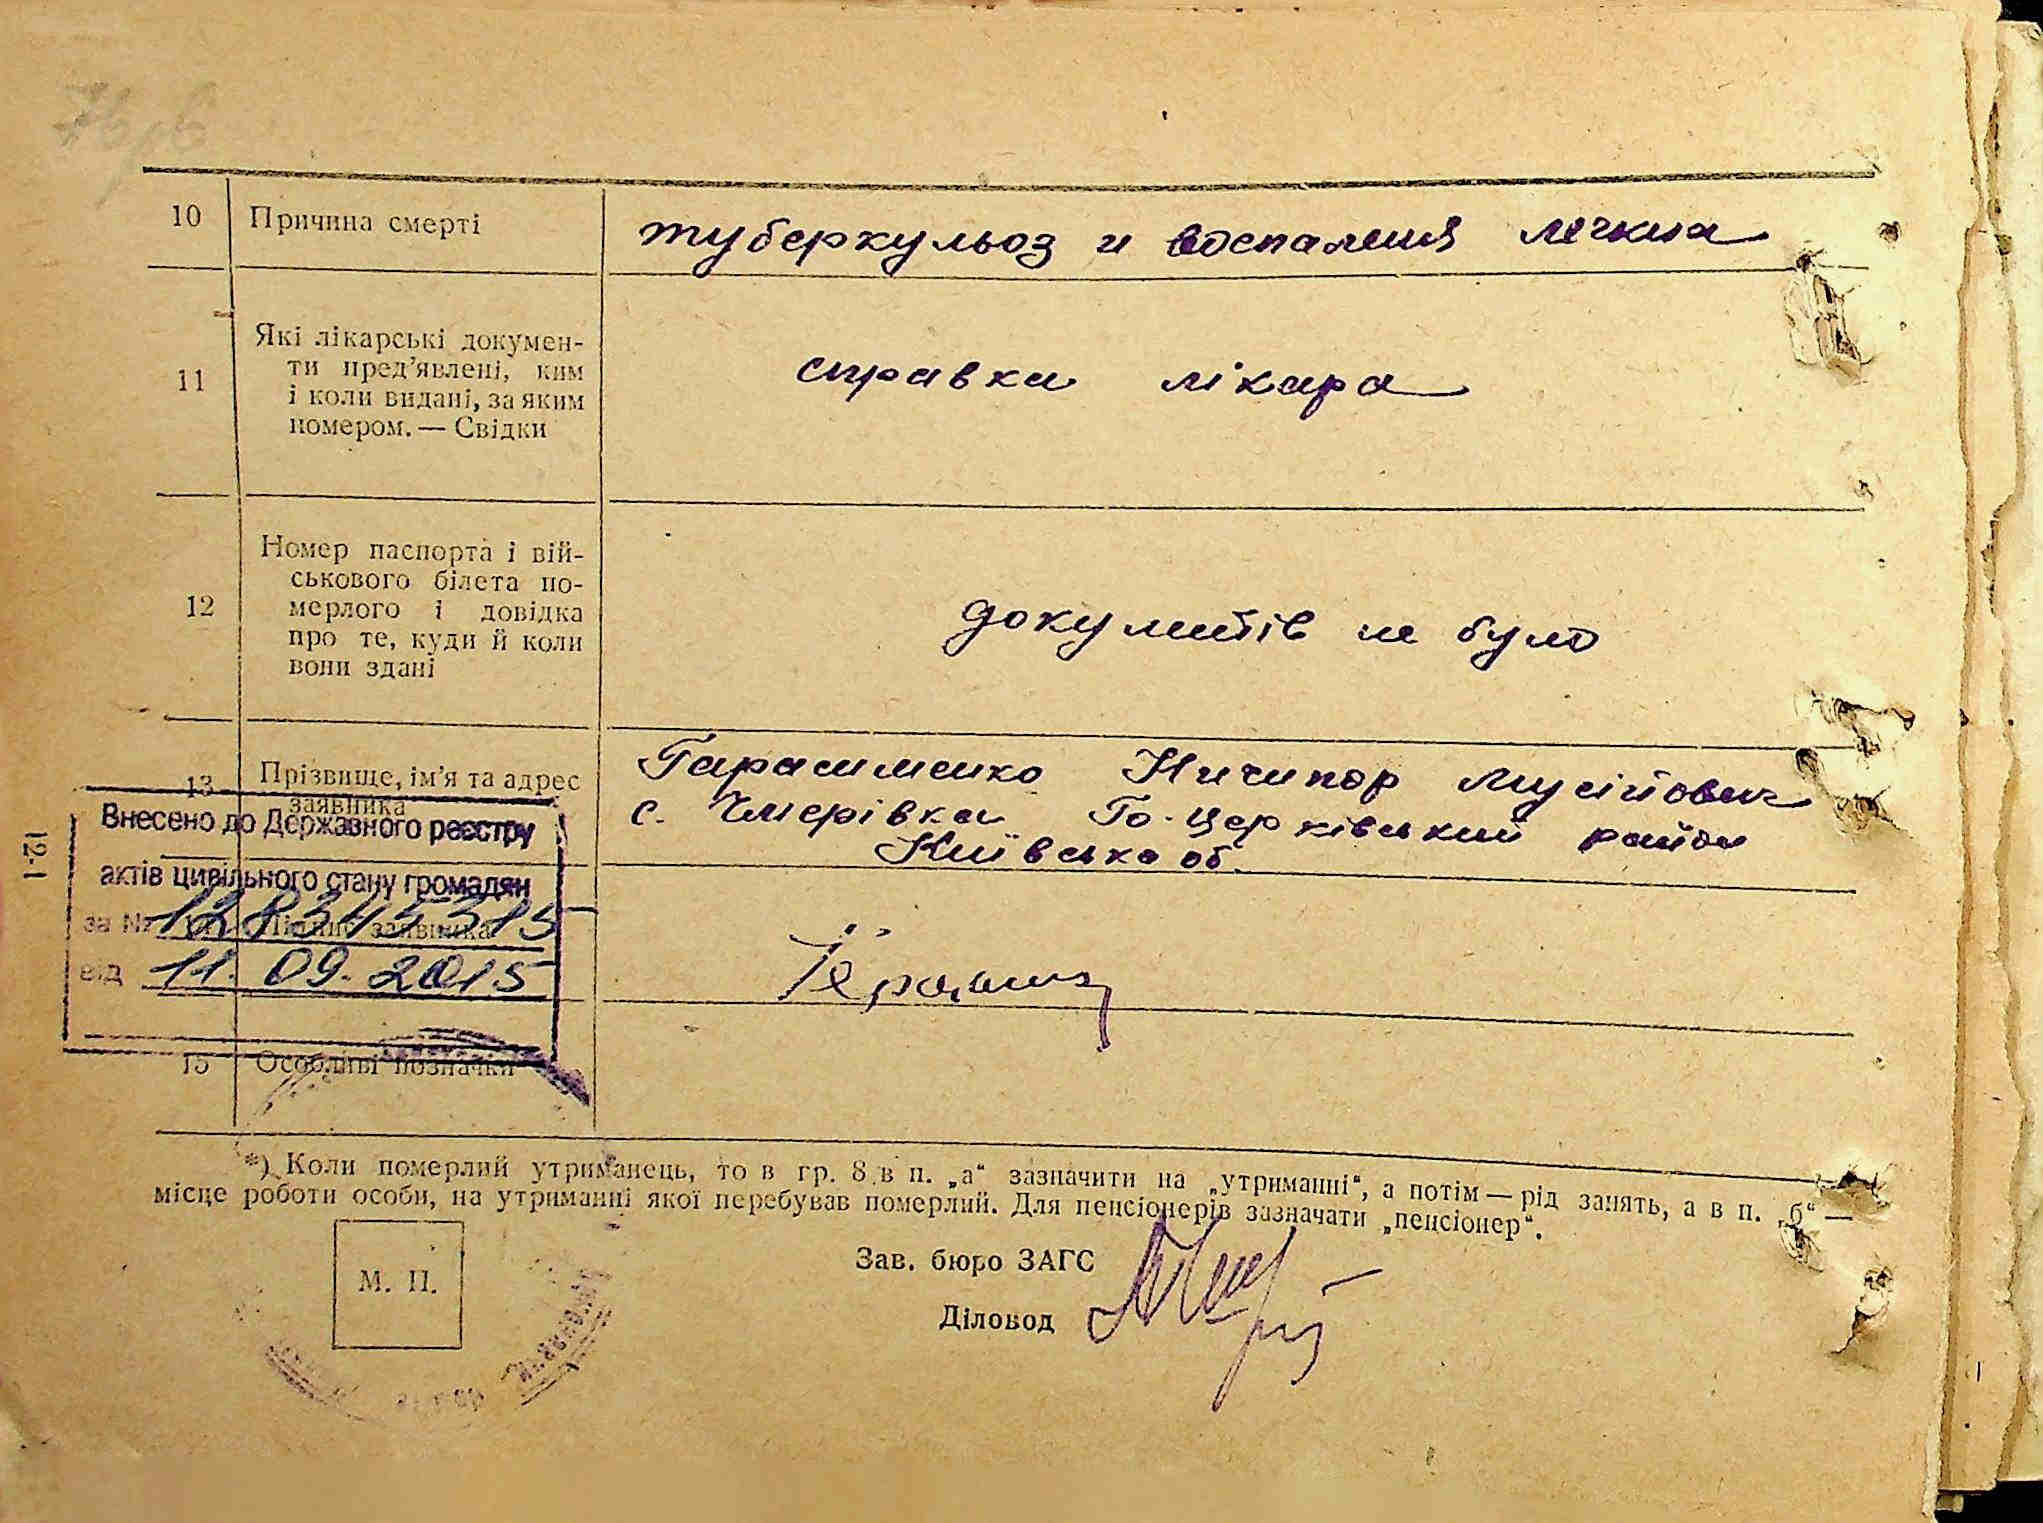 10 Причина смерті туберкульоз и воспаления легких
11 Які лікарські докумен-
ти пред'явлені, ким
і коли видані, за яким
номером. — Свідки
справка лікара
12 Номер паспорта і вій-
ськового білета по-
мерлого і довідка
про те, куди й коли
вони здані
документів не було
13 Прізвище, ім'я та адрес
заявника
Гарасименко Ничипор Мусійович
с. Чмирівка Бо-Церківський район
Київська об.
Внесено до Державного реєстру
актів цивільного стану громадян
за № 128345375
від 11. 09. 2015
Підпис заявника
15 Особливі позначки
*) Коли померлий утриманець, то в гр. 8 в п. „а“ зазначити на „утриманні“, а потім — рід занять, а в п. „б“ —
місце роботи особи, на утриманні якої перебував померлий. Для пенсіонерів зазначати „пенсіонер“.
М. П.
Зав. бюро ЗАГС
Діловод
12-1